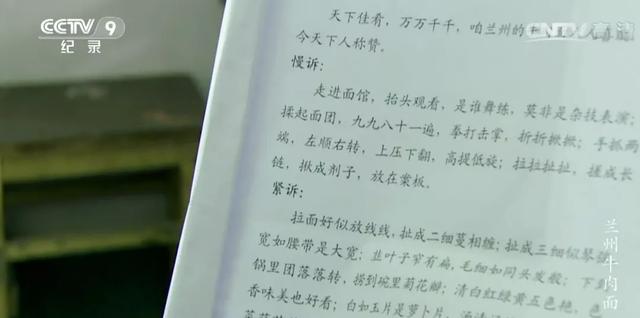 CCTV 9
纪录
CNTV 高清
天下佳肴，万万千千，咱兰州的
今天下人称赞。
慢诉：
走进面馆，抬头观看，是谁舞练，莫非是杂技表演；
揉起面团，九九八十一遍，拳打击掌，折折掀掀；手抓两
端，左顺右转，上压下翻，高提低旋；拉拉扯扯，搓成长
链，揪成剂子，放在案板。
紧诉：
拉面好似放线线，扯成二细蔓相缠；扯成三细似琴弦
宽如腰带是大宽；韭叶子窄有扁，毛细如同头发般；下到
锅里团落落转，捞到碗里菊花瓣；清白红绿黄五色艳，色
香味美也好看；白如玉片是萝卜片，汤清
兰州牛肉面